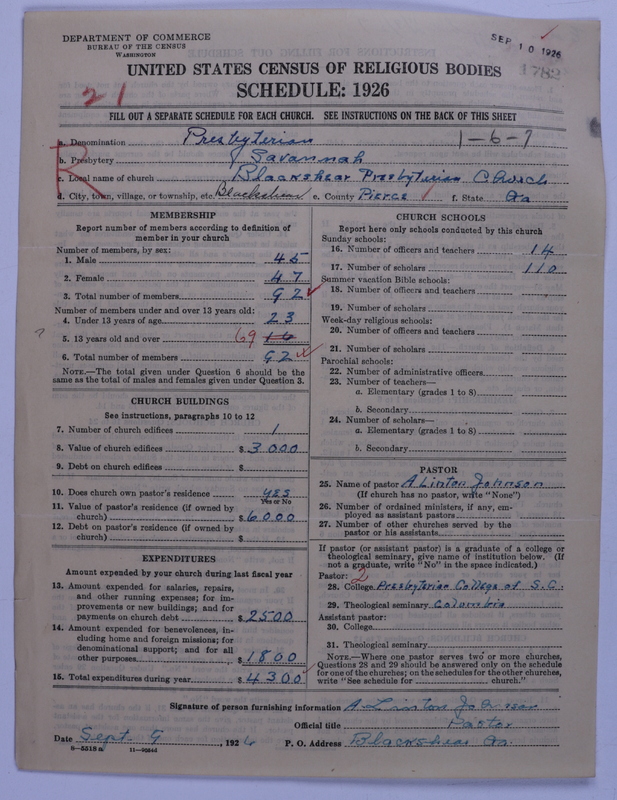 DEPARTMENT OF COMMERCE
BUREAU OF THE CENSUS
WASHINGTON
SEP 10 1926
1782
UNITED STATES CENSUS OF RELIGIOUS BODIES
SCHEDULE: 1926
21
FILL OUT A SEPARATE SCHEDULE FOR EACH CHURCH. SEE INSTRUCTIONS ON THE BACK OF THIS SHEET
R
a. Denomination Presbyterian 1-6-7
b. Presbytery Savannah
c. Local name of church Blackshear Presbyterian Church
d. City, town, village, or township, etc. Blackshear e. County Pierce f. State Ga
MEMBERSHIP
Report number of members according to definition of
member in your church
Number of members, by sex:
1. Male 45
2. Female 47
3. Total number of members 92
Number of members under and over 13 years old:
4. Under 13 years of age 23
5. 13 years old and over 69
6. Total number of members 92
NOTE.—The total given under Question 6 should be the
same as the total of males and females given under Question 3.
CHURCH BUILDINGS
See instructions, paragraphs 10 to 12
7. Number of church edifices 1
8. Value of church edifices $3000
9. Debt on church edifices $
10. Does church own pastor's residence yes
Yes or No
11. Value of pastor's residence (if owned by
church) $6000
12. Debt on pastor's residence (if owned by
church) $
EXPENDITURES
Amount expended by your church during last fiscal year
13. Amount expended for salaries, repairs,
and other running expenses; for im-
provements or new buildings; and for
payments on church debt $2500
14. Amount expended for benevolences, in-
cluding home and foreign missions; for
denominational support; and for all
other purposes $1800
15. Total expenditures during year $4300
CHURCH SCHOOLS
Report here only schools conducted by this church
Sunday schools:
16. Number of officers and teachers 14
17. Number of scholars 110
Summer vacation Bible schools:
18. Number of officers and teachers
19. Number of scholars
Week-day religious schools:
20. Number of officers and teachers
21. Number of scholars
Parochial schools:
22. Number of administrative officers
23. Number of teachers—
a. Elementary (grades 1 to 8)
b. Secondary
24. Number of scholars—
a. Elementary (grades 1 to 8)
b. Secondary
PASTOR
25. Name of pastor A Linton Johnson
(If church has no pastor, write "None")
26. Number of ordained ministers, if any, em-
ployed as assistant pastors
27. Number of other churches served by the
pastor or his assistants
If pastor (or assistant pastor) is a graduate of a college or
theological seminary, give name of institution below. (If
not a graduate, write "No" in the space indicated.)
Pastor: 2
28. College Presbyterian College of S.C.
29. Theological seminary Columbia
Assistant pastor:
30. College
31. Theological seminary
NOTE.—Where one pastor serves two or more churches,
Questions 28 and 29 should be answered only on the schedule
for one of the churches; on the schedules for the other churches,
write "See schedule for church."
Signature of person furnishing information A. Linton Johnson
Official title Pastor
Date Sept. 9, 1926 P. O. Address Blackshear Ga.
8-5518a 11-9264d